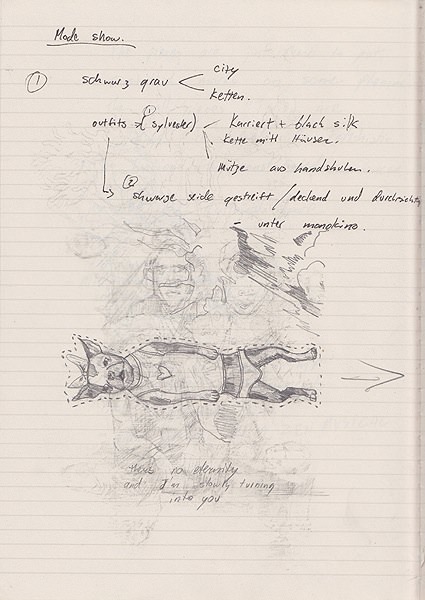 Mode show.
① schwarz grau < city
ketten.
outfits ① (sylvester) Karriert + black silk
Kette mitt Häuser.
Mütze aus handshuhen.
② shwarze seide gestreift / deckend und durchsichtig
– unter monokino.
no eternity
and I'm slowly turning
into you